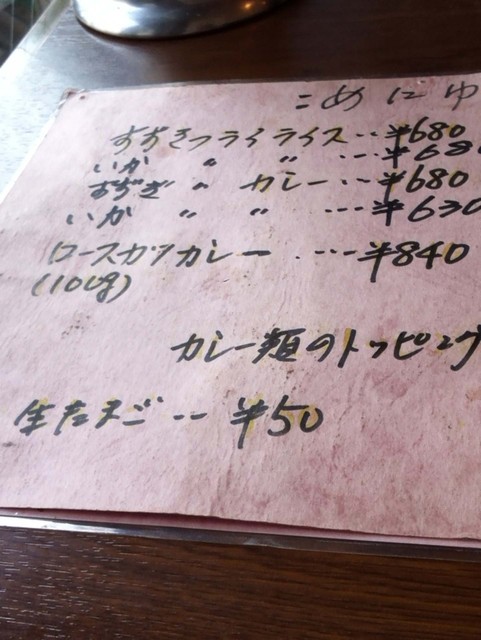 こめにゆ
すずきフライライス‥¥680
いか 〃 〃 …¥680
すずき 〃 カレー…¥680
いか 〃 〃 …¥630
ロースカツカレー …¥840
(100g)
カレー類のトッピング
生たまご‥¥50